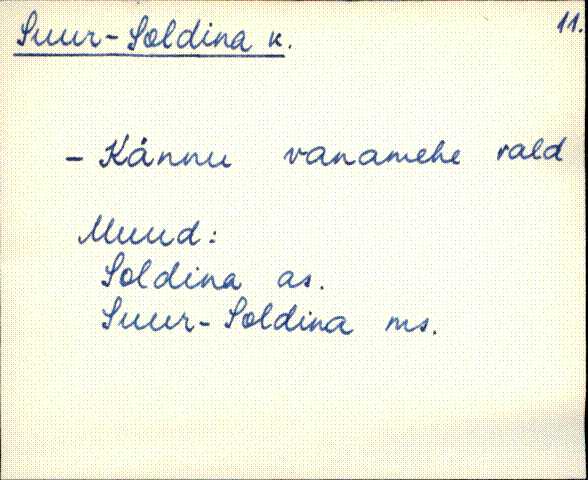 Suur-Soldina k. 11.
- Kännu vanamehe vald
Muud:
Soldina as.
Suur-Soldina ms.